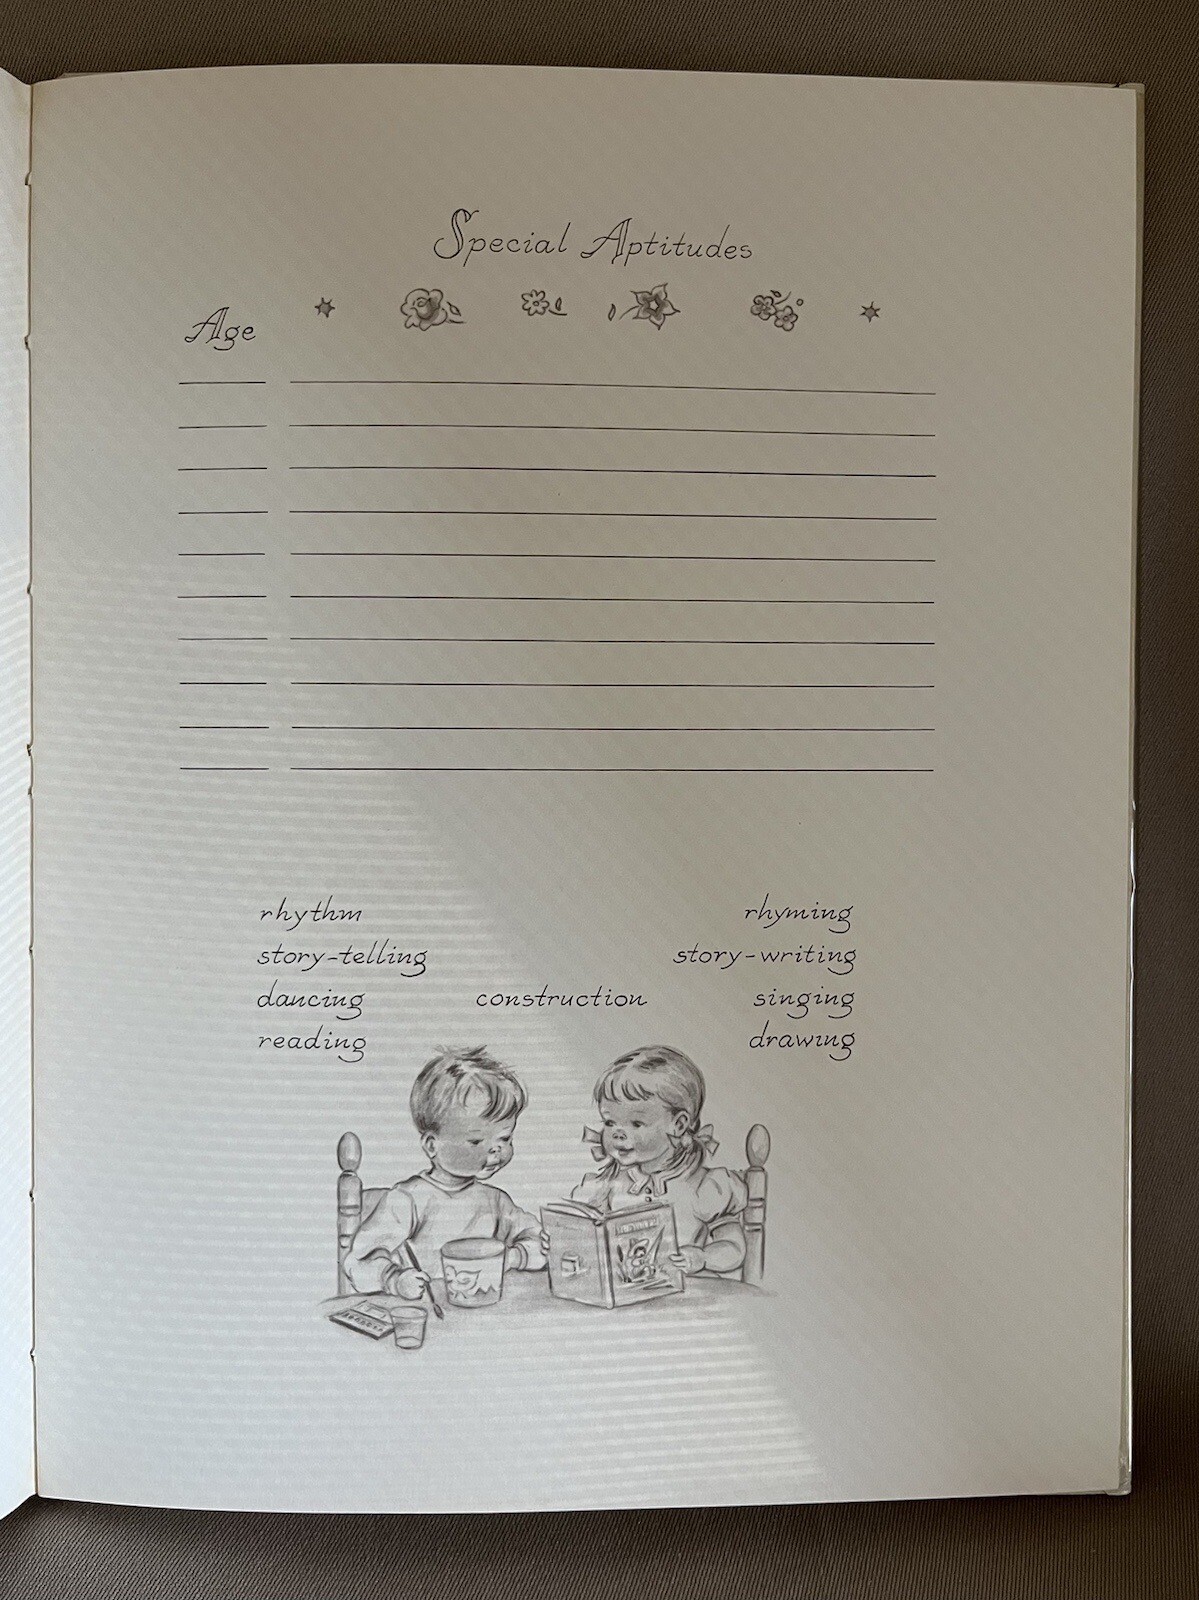 Special Aptitudes
Age
rhythm
rhyming
story-telling
story-writing
dancing
construction
singing
reading
drawing